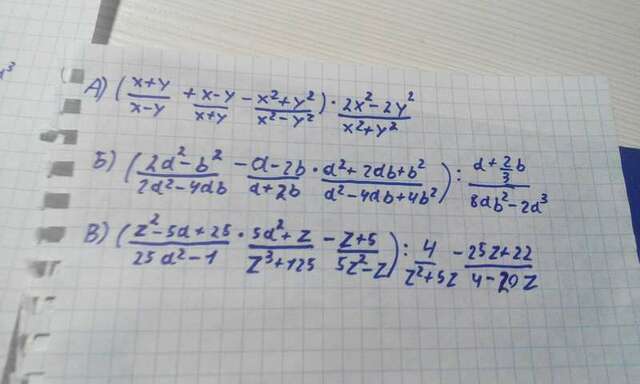 А) (x+y/x-y + x-y/x+y - x²+y²/x²-y²) · 2x²-2y²/x²+y²
Б) (2a²-b²/2a²-4ab - a-2b/a+2b · a²+2ab+b²/a²-4ab+4b²) : a+2/3b/8ab²-2a³
В) (z²-5a+25/25a²-1 · 5a²+z/z³+125 - z+5/5z²-z) : 4/z²+5z - 25z+22/4-20z